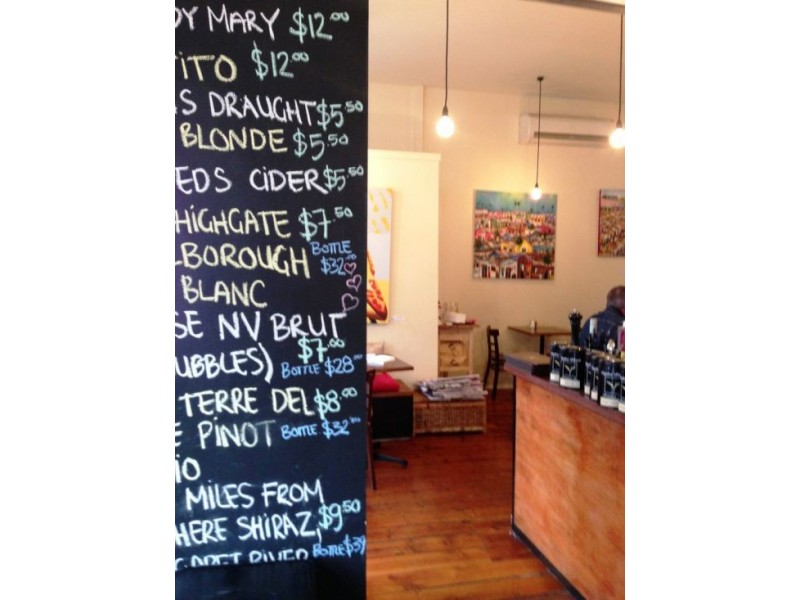 DY MARY $12.00
ITO $12.00
S DRAUGHT $5.50
BLONDE $5.50
EDS CIDER $5.50
HIGHGATE $7.50
LBOROUGH BOTTLE $32.00
BLANC
SE NV BRUT
UBBLES) $7.00 BOTTLE $28.00
TERRE DEL $8.00
E PINOT BOTTLE $32.00
IO
MILES FROM
HERE SHIRAZ, $9.50
GARET RIVER BOTTLE $39